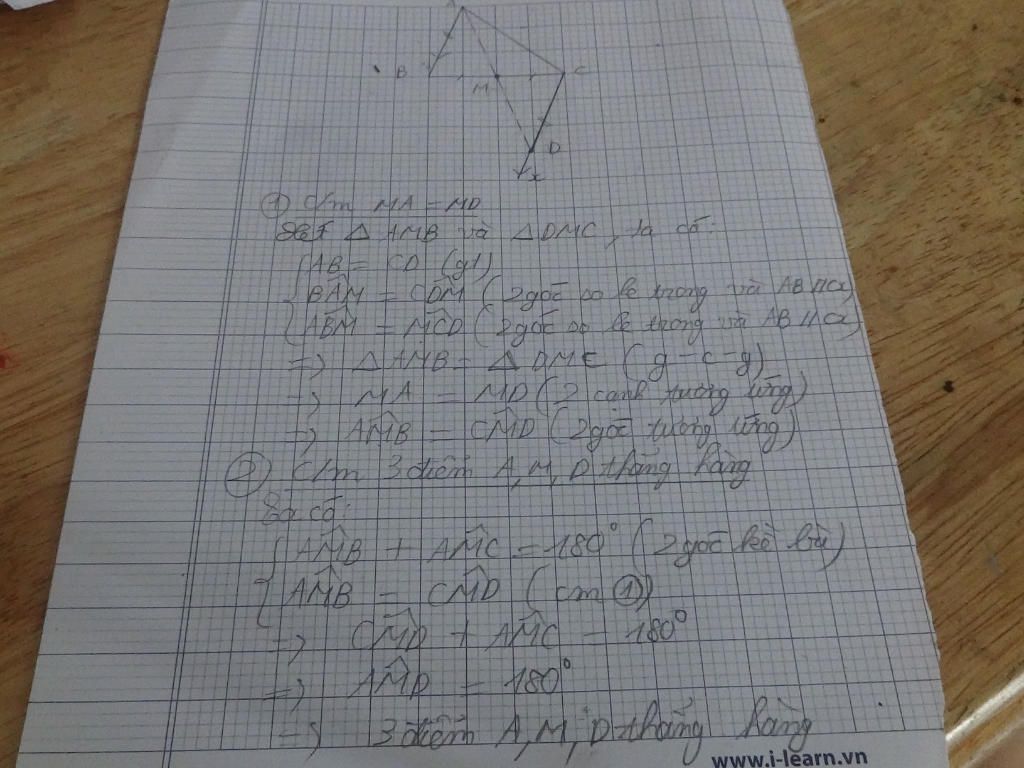 B
C
M
D
x
① C/m MA = MD
Xét △ AMB và △ DMC, ta có:
AB = CD (gt)
BÂM = CD̂M (2 góc so le trong và AB // Cx)
AB̂M = MĈD (2 góc so le trong và AB // Cx)
=> △ AMB = △ DMC (g-c-g)
=> MA = MD (2 cạnh tương ứng)
=> AM̂B = CM̂D (2 góc tương ứng)
② C/m 3 điểm A, M, D thẳng hàng
Ta có:
AM̂B + AM̂C = 180° (2 góc kề bù)
AM̂B = CM̂D (cm ①)
=> CM̂D + AM̂C = 180°
=> AM̂D = 180°
=> 3 điểm A, M, D thẳng hàng
www.i-learn.vn